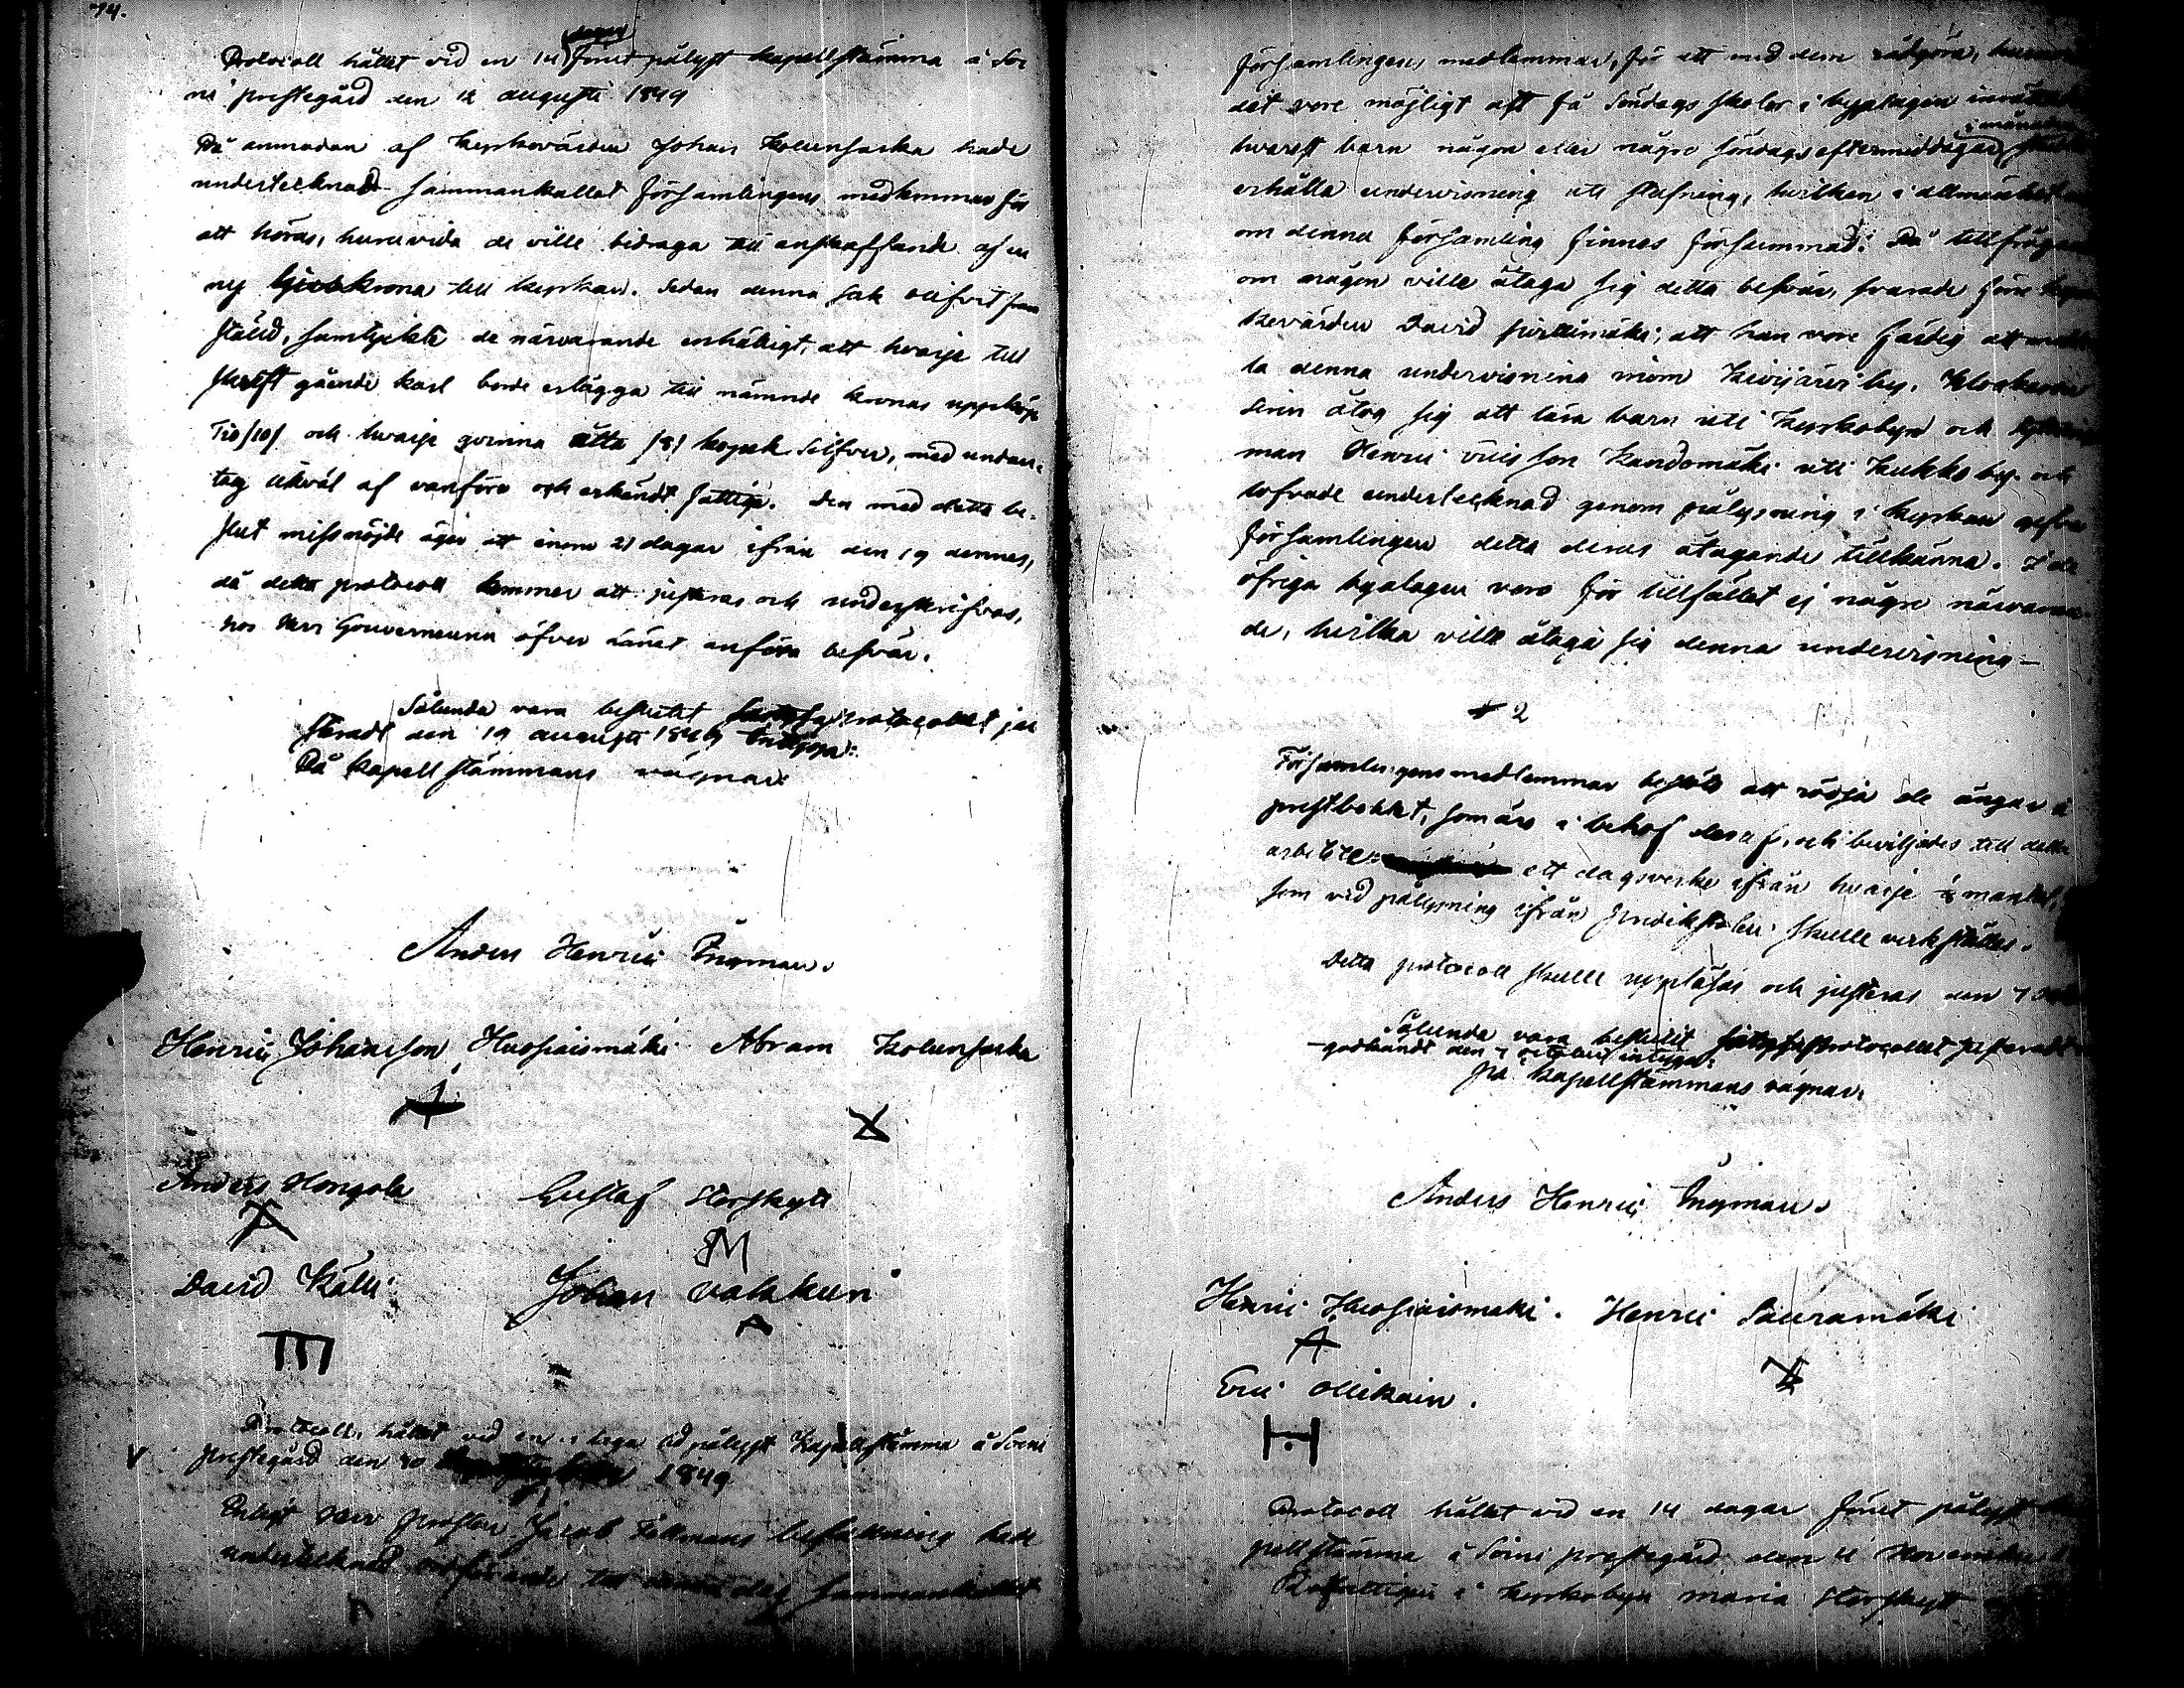 74.
Protocoll hållet vid en 14 dagar förut pålyst kapellstämma å Soi
ni prestegård den 12 augusti 1849
På anmodan af Kyrkovärden Johan Kolunsarka hade
undertecknad sammankallat församlingens medlemmar för
att höras, huruvida de ville bidraga till anskaffande af en
ny ljuskrona till kyrkan. Sedan denna sak blifvit fram
ställd, samtyckte de närvarande enhäligt, att hvarje till
skrift gående karl borde erlägga till nämnde kronas uppköp
Tio /10/ och hvarje qvinna åtta /8/ kopek Silfver, med undan-
tag likväl af vanföra och erkändt fattige. Den med detta be-
slut missnöjde äger att inom 21 dagar ifrån den 19 dennes,
då detta protocoll kommer att justeras och underskrifvas,
hos Herr Gouverneuren öfver Länet anföra besvär.
Sålunda vara beslutet protocollet ju
steradt den 19 augusti 1849 betygar:
På kapellstämmans vägnar
Anders Henric Ingman.
Henric Johansson Huosiaismäki Abram Kolunsarka
Anders Hongola Gustaf Storskytt
David Källi Johan Valakuri
Protocoll, hållet vid en laga tid pålyst Kapellstämma å Soini
prestegård den 30 1849
Enligt Herr Prosten Jacob Fellmans befallning hade
undertecknad ordförande till denna dag sammankallat
församlingens medlemmar, för att med dem rådgöra, huruvida
det vore möjligt att få Söndags skolor i byalagen
i månaden
hvarest barn någon eller några söndagseftermiddagar
erhålla undervisning uti stafning, hvilken i allmänhet
om denna församling finnes försummad. Då tillfrågades
om någon ville åtaga sig detta besvär, svarade förre
kevärden David Pirttimäki; att han vore färdig att medde
la denna undervisning inom Kivijärvi by. Klockaren
Sirén åtog sig att lära barn uti Kyrkobyn och
man Henric Ericsson Kandomäki uti Kukko by. och
lofvade undertecknad genom pålysning i kyrkan gifva
församlingen detta deras åtagande tillkänna. I de
öfriga byalagen voro för tillfället ej några närvaran
de, hvilka ville åtaga sig denna undervisning. –
2
Församlingens medlemmar beslöto att rödja de ängar å
prestbolet, som äro i behof deraf, och beviljades till detta
arbete ett dagsverke ifrån hvarje mantal,
som vid pålysning ifrån predikstolen skulle verkställas.
Detta protocoll skulle uppläsas och justeras den 7
Sålunda vara beslutit protocollet justeradt
godkändt den 7 october intygar:
På kapellstämmans vägnar.
Anders Henric Ingman.
Henric Huosiaismäki. Henric Sauramäki
Eric Ollikain.
Protocoll hållet vid en 14 dagar förut pålyst
pellstämma å Soini prestegård den 4 November
Rotfattigen i Kyrkobyn Maria Storskytt